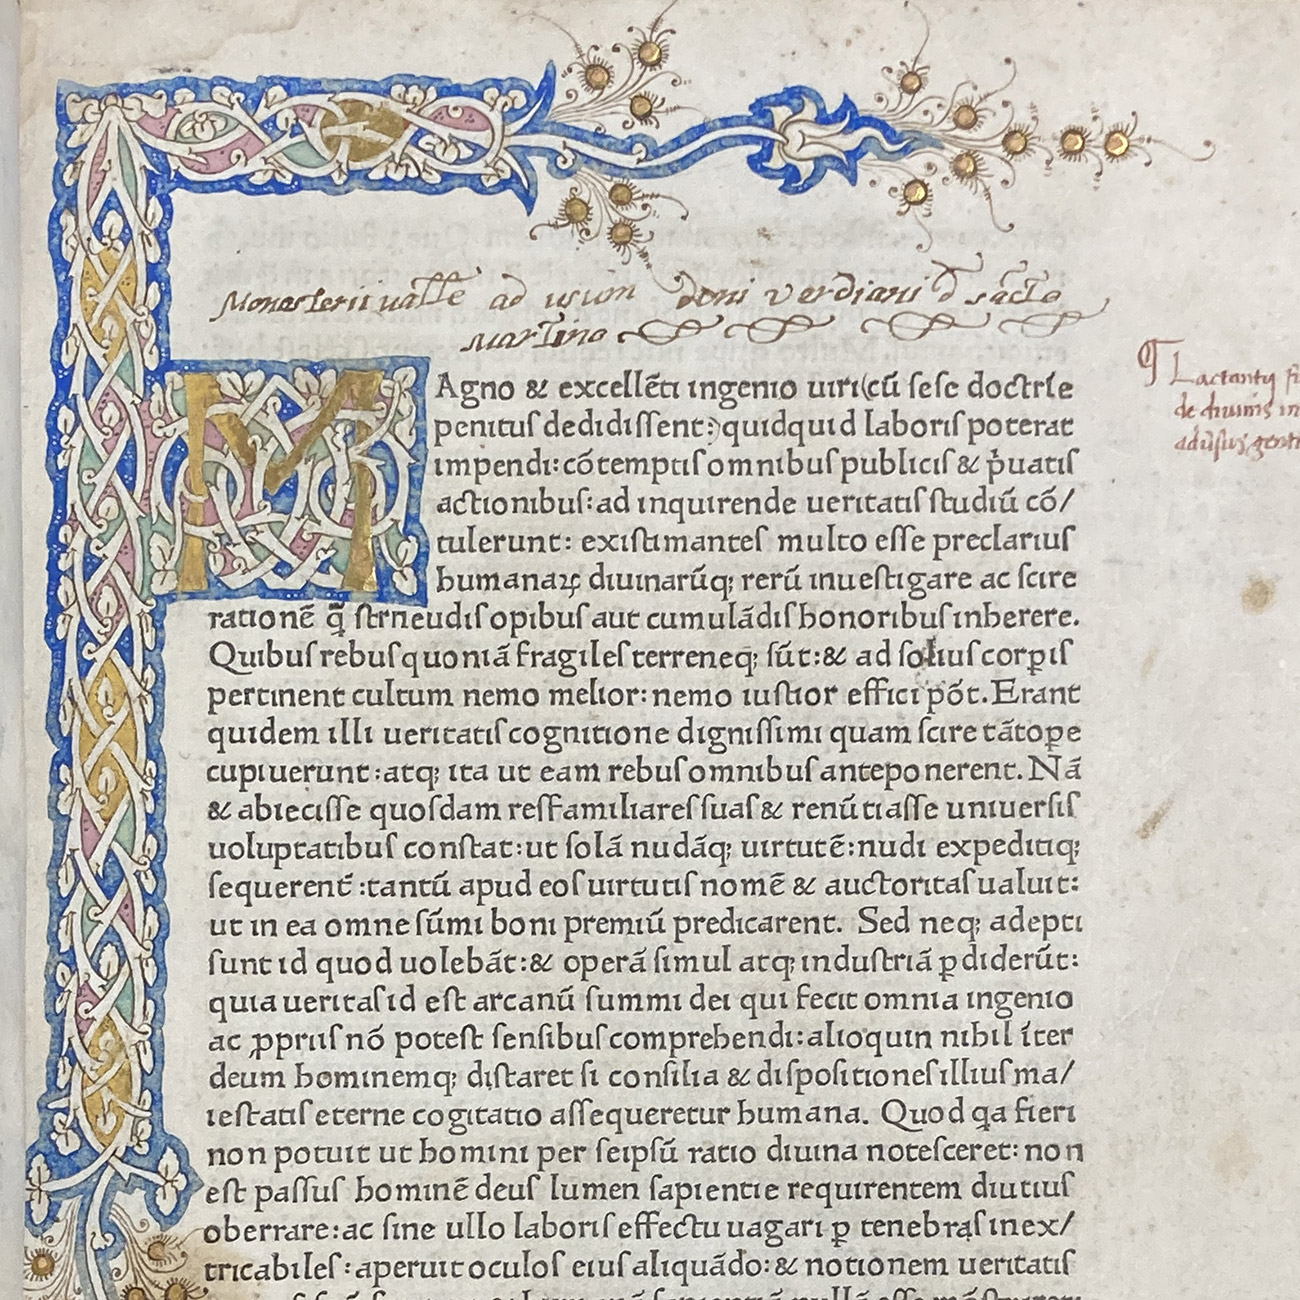 Monasterii vallis ad usum doni verdiani d sācto
martino
¶ Lactantij fi
de diuinis in
adusus genti
MAgno & excellēti ingenio uiri(cū ſeſe doctrīe
penituſ dedidiſſent:)quidquid laboriſ poterat
impendi:cōtemptiſ omnibuſ publiciſ & p̄uatiſ
actionibuſ:ad inquirende ueritatiſ ſtudiū cō/
tulerunt: exiſtimanteſ multo eſſe preclariuſ
humanaꝝ diuinarūq; rerū inueſtigare ac ſcire
rationē q̄ ſtrneudiſ opibuſ aut cumulādiſ honoribuſ inherere.
Quibuſ rebuſ quoniā fragileſ terreneq; ſūt:& ad ſoliuſ corꝑiſ
pertinent cultum nemo melior: nemo iuſtior effici pōt. Erant
quidem illi ueritatiſ cognitione digniſſimi quam ſcire tātoꝑe
cupiuerunt:atq; ita ut eam rebuſ omnibuſ anteponerent. Nā
& abieciſſe quoſdam reſ familiareſ ſuaſ & renūtiaſſe uniuerſiſ
uoluptatibuſ conſtat:ut ſolā nudāq; uirtutē:nudi expeditiq;
ſequerent̄ :tantū apud eoſ uirtutiſ nomē & auctoritaſ ualuit:
ut in ea omne ſūmi boni premiū predicarent. Sed neq; adepti
ſunt id quod uolebāt:& operā ſimul atq; induſtriā ꝑdiderūt:
quia ueritaſ id eſt arcanū ſummi dei qui fecit omnia ingenio
ac ꝓpriiſ nō poteſt ſenſibuſ comprehendi:alioquin nihil īter
deum hominemq; diſtaret ſi conſilia & diſpoſitioneſ illiuſ ma/
ieſtatiſ eterne cogitatio aſſequeretur humana. Quod q̣a fieri
non potuit ut homini per ſeipſū ratio diuina noteſceret: non
eſt paſſuſ hominē deuſ lumen ſapientie requirentem diutiuſ
oberrare:ac ſine ullo laboriſ effectu uagari ꝑ tenebraſ inex/
tricabileſ:aperuit oculoſ eiuſ aliquādo:& notionem ueritatiſ